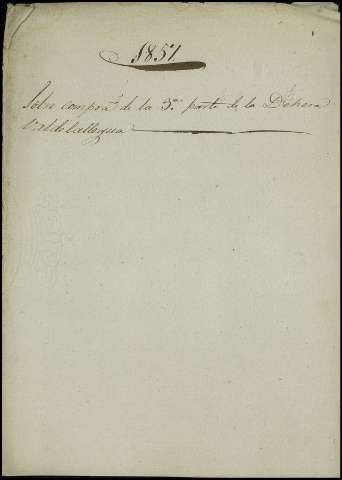 1851
Sobre compra de la 3.ª parte de la Dehesa
Valdelallegua